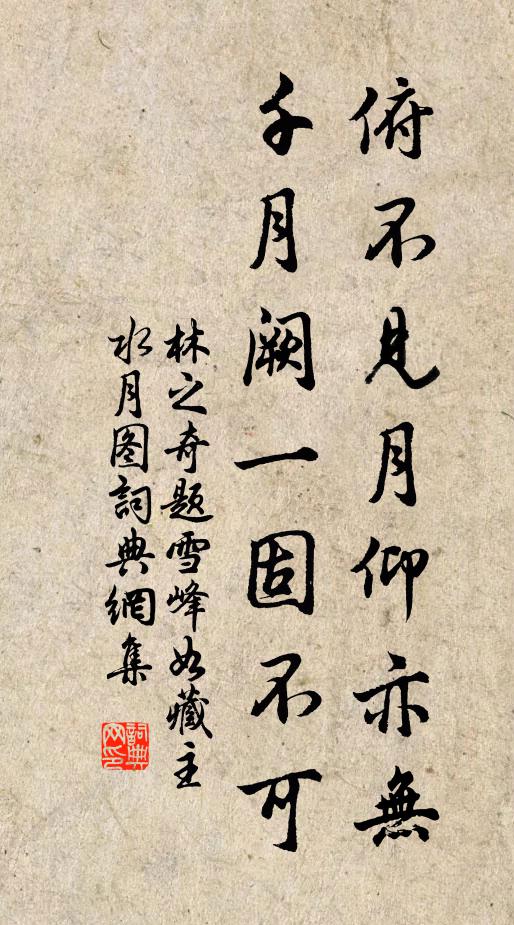 俯不見月仰亦無
千月阙一固不可
林之奇题雪峰如藏主
水月图詞典網集
詞典
网印